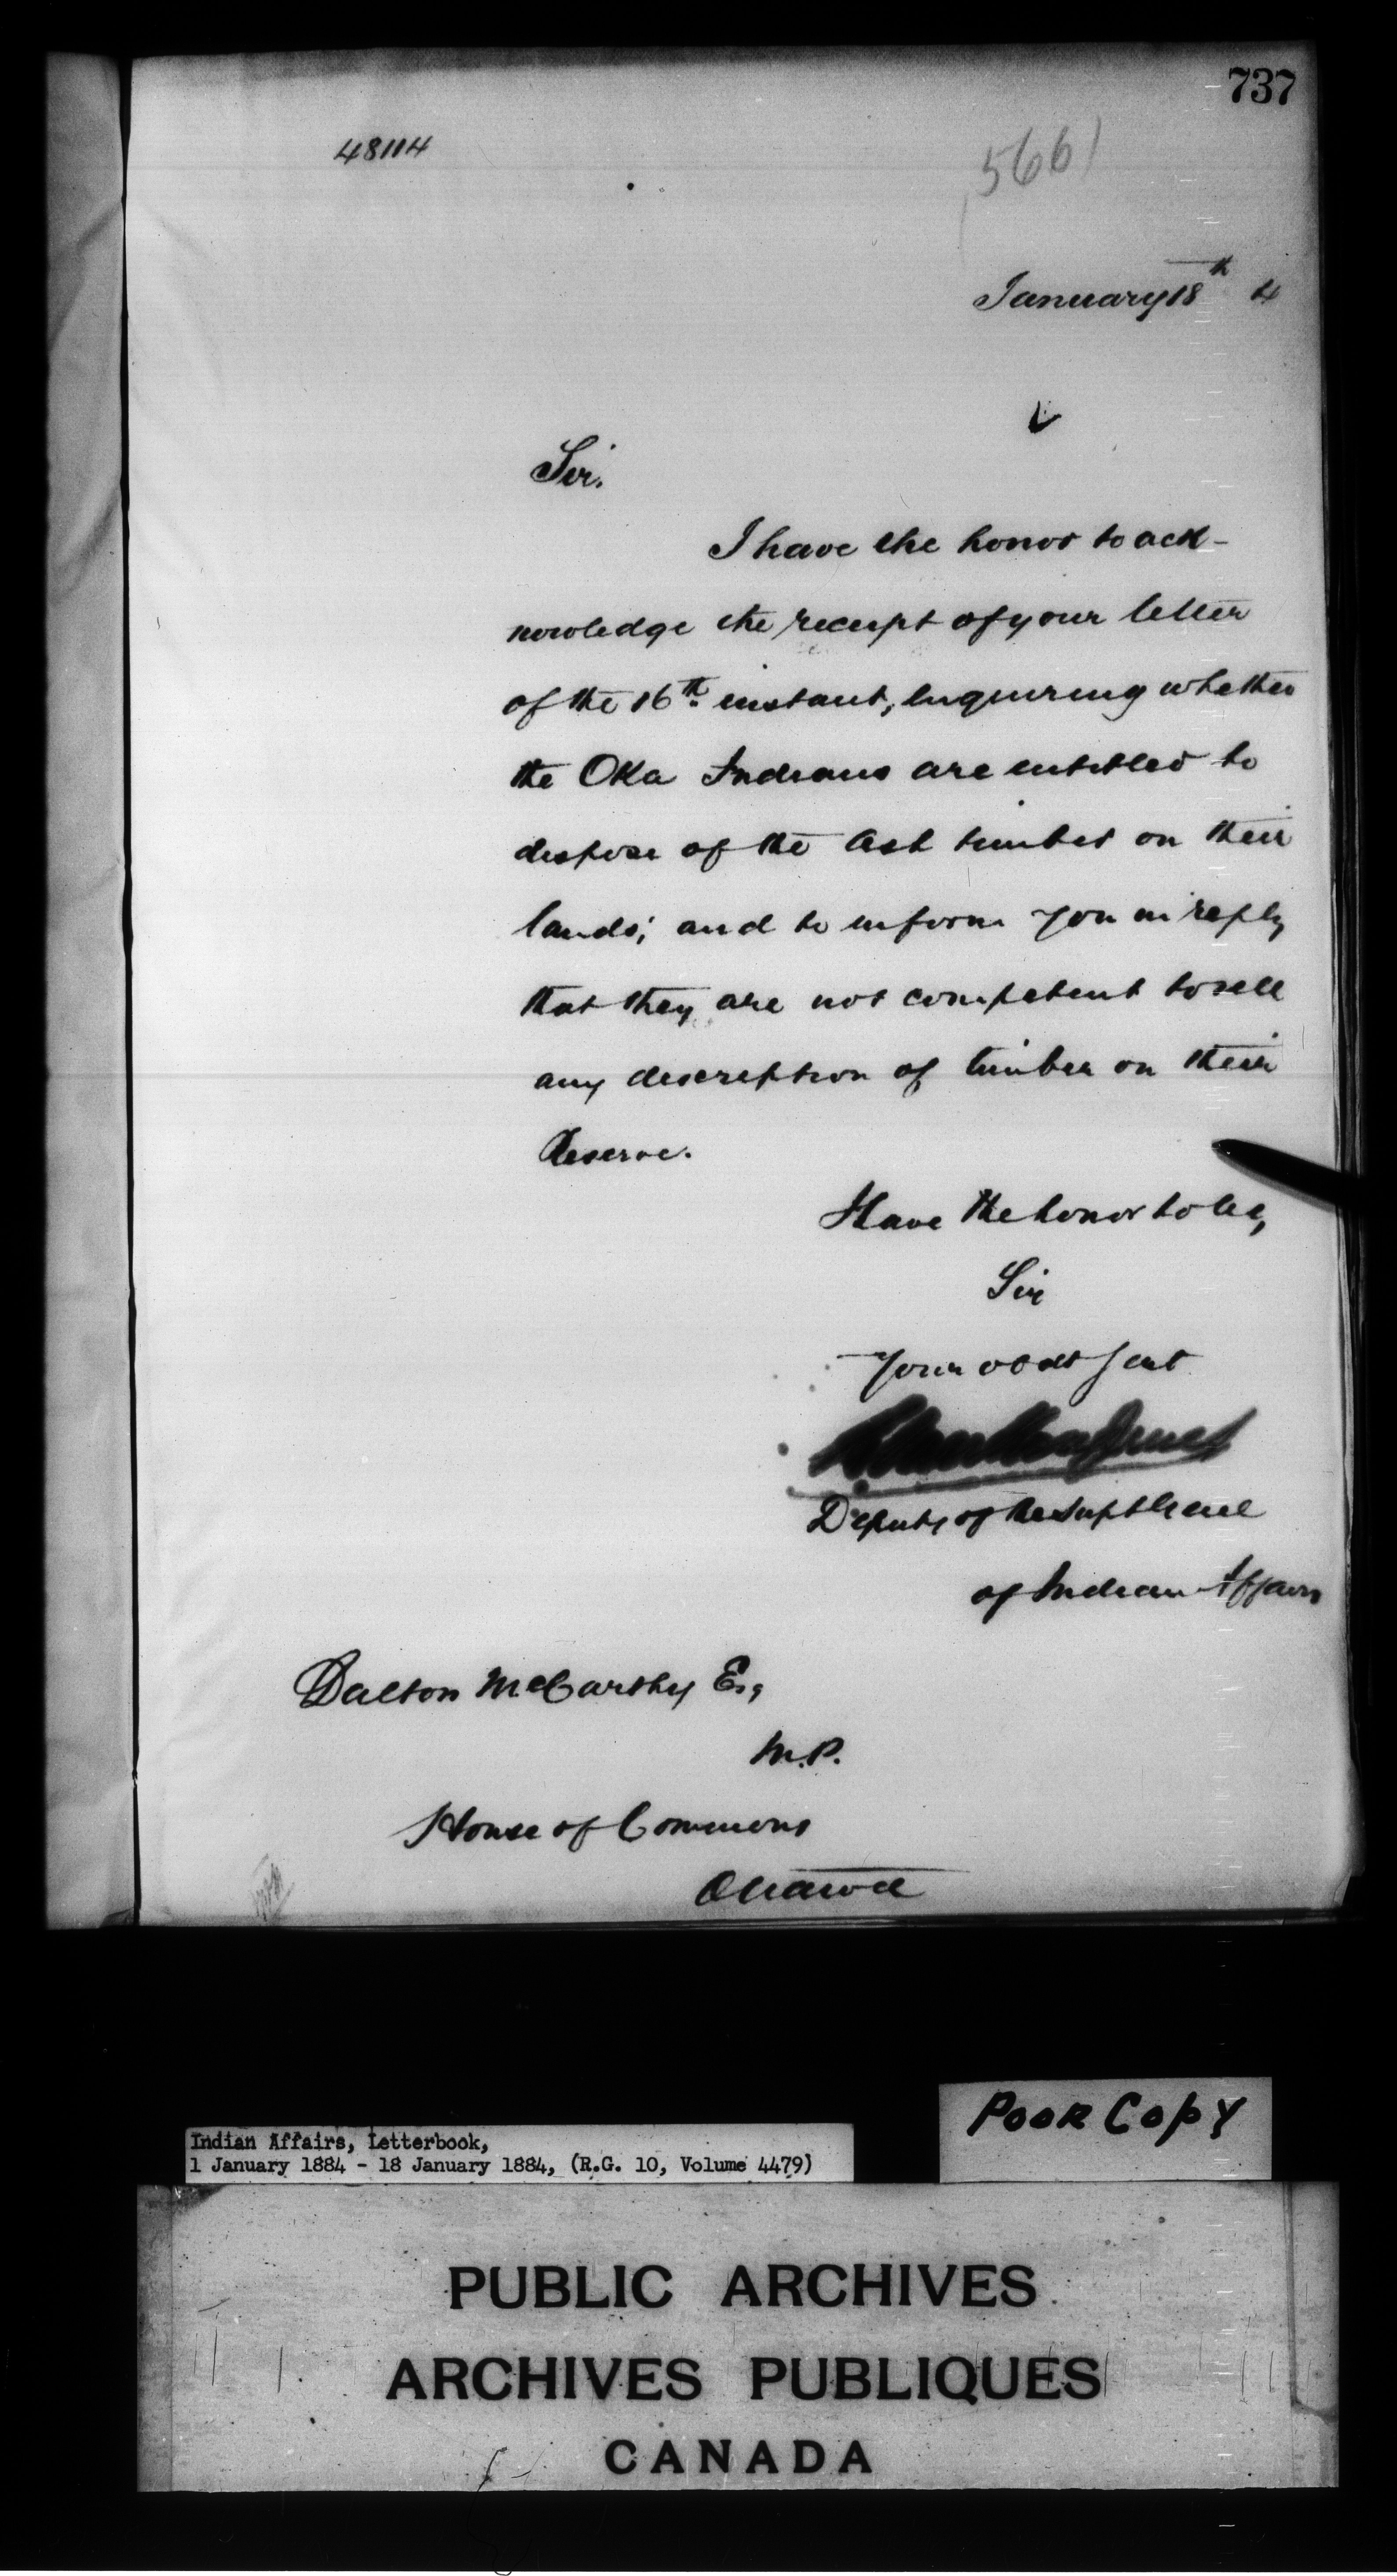 737
48114
5661
January 18th 4
Sir.
I have the honor to ack-
nowledge the receipt of your letter
of the 16th instant, enquiring whether
the Oka Indians are entitled to
dispose of the Ash timber on their
lands; and to inform you in reply
that they are not competent to sell
any description of timber on their
Reserve.
Have the honor to be,
Sir
Your obdt Servt
Deputy of the Supt Genl
of Indian Affairs
Dalton McCarthy Esq
M.P.
House of Commons
Ottawa
POOR COPY
Indian Affairs, Letterbook,
1 January 1884 - 18 January 1884, (R.G. 10, Volume 4479)
PUBLIC ARCHIVES
ARCHIVES PUBLIQUES
CANADA